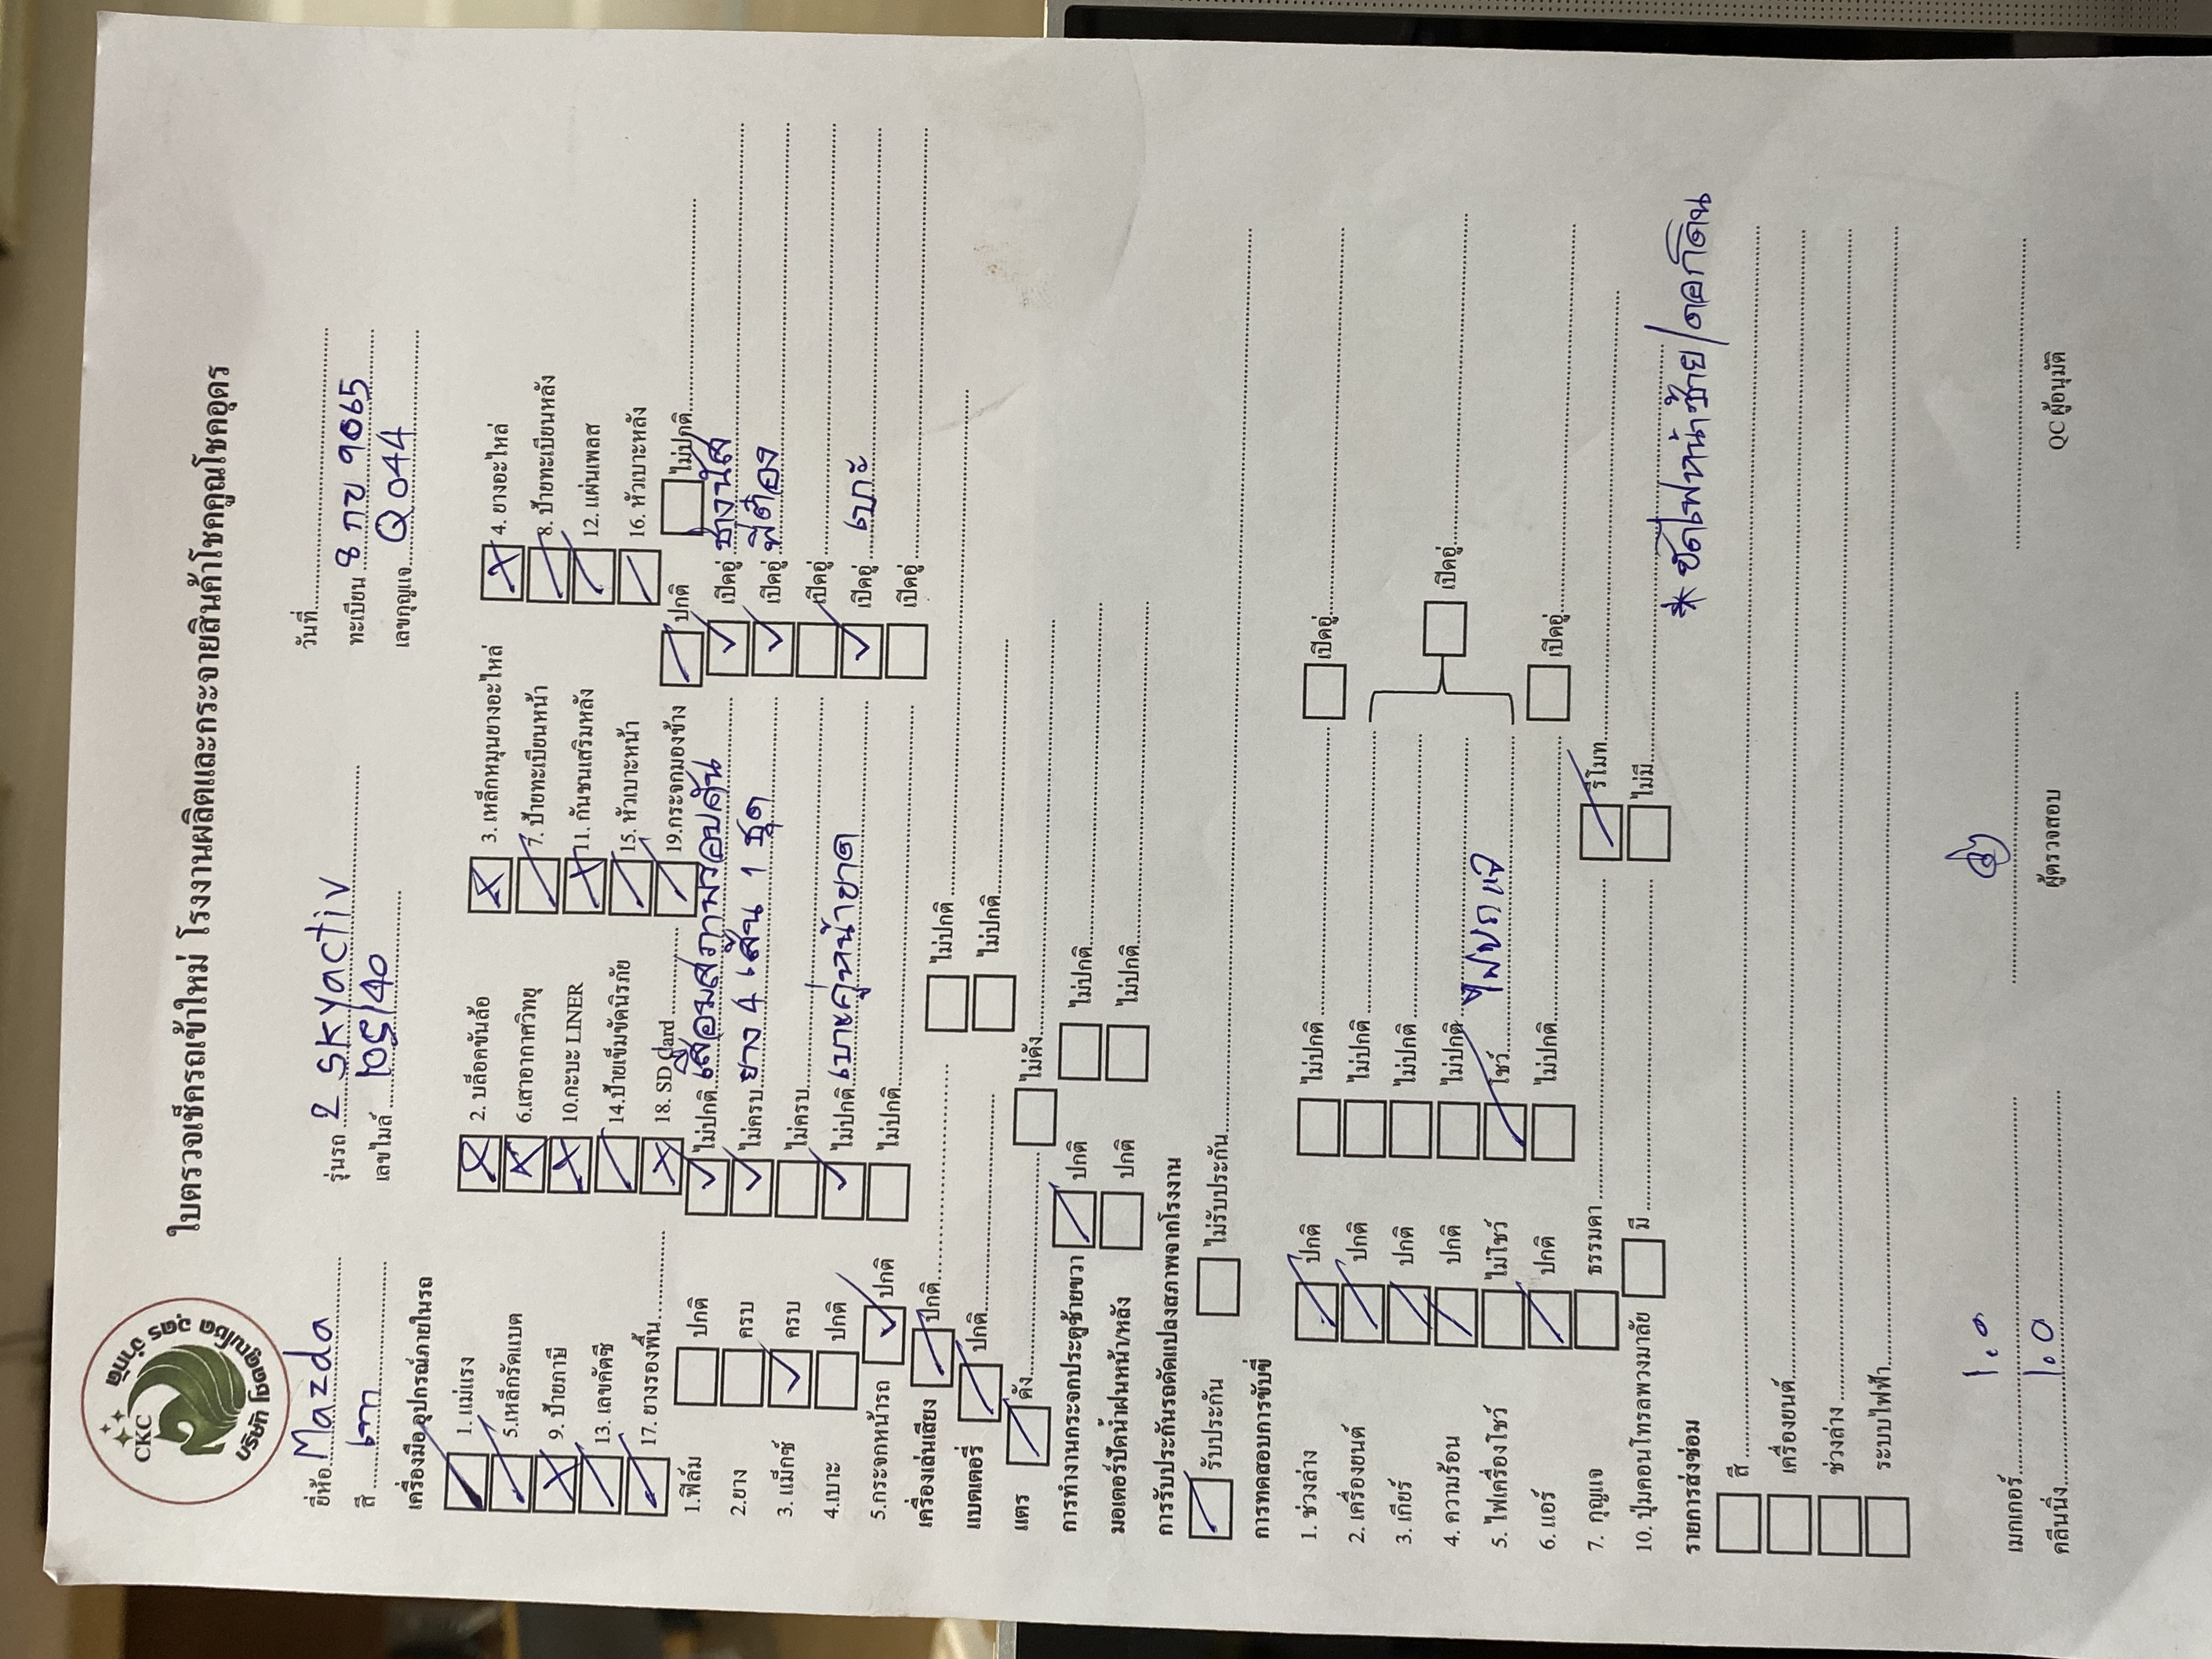 CKC
บริษัท โชคคูณโชค อุดร จำกัด
ใบตรวจเช็ครถเข้าใหม่ โรงงานผลิตและกระจายสินค้าโชคคูณโชคอุดร
วันที่
ยี่ห้อ Mazda รุ่นรถ 2 SKYactiv ทะเบียน 8 กข 9065
สี เทา เลขไมล์ 105140 เลขกุญแจ Q 044
เครื่องมืออุปกรณ์ภายในรถ
1. แม่แรง 2. บล็อคขันล้อ 3. เหล็กหมุนยางอะไหล่ 4. ยางอะไหล่
5.เหล็กรัดแบต 6.เสาอากาศวิทยุ 7. ป้ายทะเบียนหน้า 8. ป้ายทะเบียนหลัง
9. ป้ายภาษี 10.กะบะ LINER 11. กันชนเสริมหลัง 12. แผ่นเพลส
13. เลขคัตซี 14.ป้ายเข็มขัดนิรภัย 15. หัวเบาะหน้า 16. หัวเบาะหลัง
17. ยางรองพื้น 18. SD Card 19.กระจกมองข้าง ปกติ ไม่ปกติ
1.ฟิล์ม ปกติ ไม่ปกติ เสื่อมสภาพรอบคัน เปิดอยู่ ช่างนัส
2.ยาง ครบ ไม่ครบ ยาง 4 เส้น 1 ชุด เปิดอยู่ พี่ต๋อง
3. แม็กซ์ ครบ ไม่ครบ เปิดอยู่
4.เบาะ ปกติ ไม่ปกติ เบาะคู่หน้าขาด เปิดอยู่ เบาะ
5.กระจกหน้ารถ ปกติ ไม่ปกติ เปิดอยู่
เครื่องเล่นเสียง ปกติ ไม่ปกติ
แบตเตอรี่ ปกติ ไม่ปกติ
แตร ดัง ไม่ดัง
การทำงานกระจกประตูซ้ายขวา ปกติ ไม่ปกติ
มอเตอร์ปัดน้ำฝนหน้า/หลัง ปกติ ไม่ปกติ
การรับประกันรถดัดแปลงสภาพจากโรงงาน
รับประกัน ไม่รับประกัน
การทดสอบการขับขี่
1. ช่วงล่าง ปกติ ไม่ปกติ เปิดอยู่
2. เครื่องยนต์ ปกติ ไม่ปกติ
3. เกียร์ ปกติ ไม่ปกติ
4. ความร้อน ปกติ ไม่ปกติ เปิดอยู่
5. ไฟเครื่องโชว์ ไม่โชว์ โชว์
6. แอร์ ปกติ ไม่ปกติ เปิดอยู่
7. กุญแจ ธรรมดา รีโมท
10. ปุ่มคอนโทรลพวงมาลัย มี ไม่มี
รายการส่งซ่อม
* ขัดไฟหน้าซ้าย/
สี
เครื่องยนต์
ช่วงล่าง
ระบบไฟฟ้า
เมกเกอร์ 1.0
คลีนนิ่ง 1.0 ผู้ตรวจสอบ QC ผู้อนุมัติ